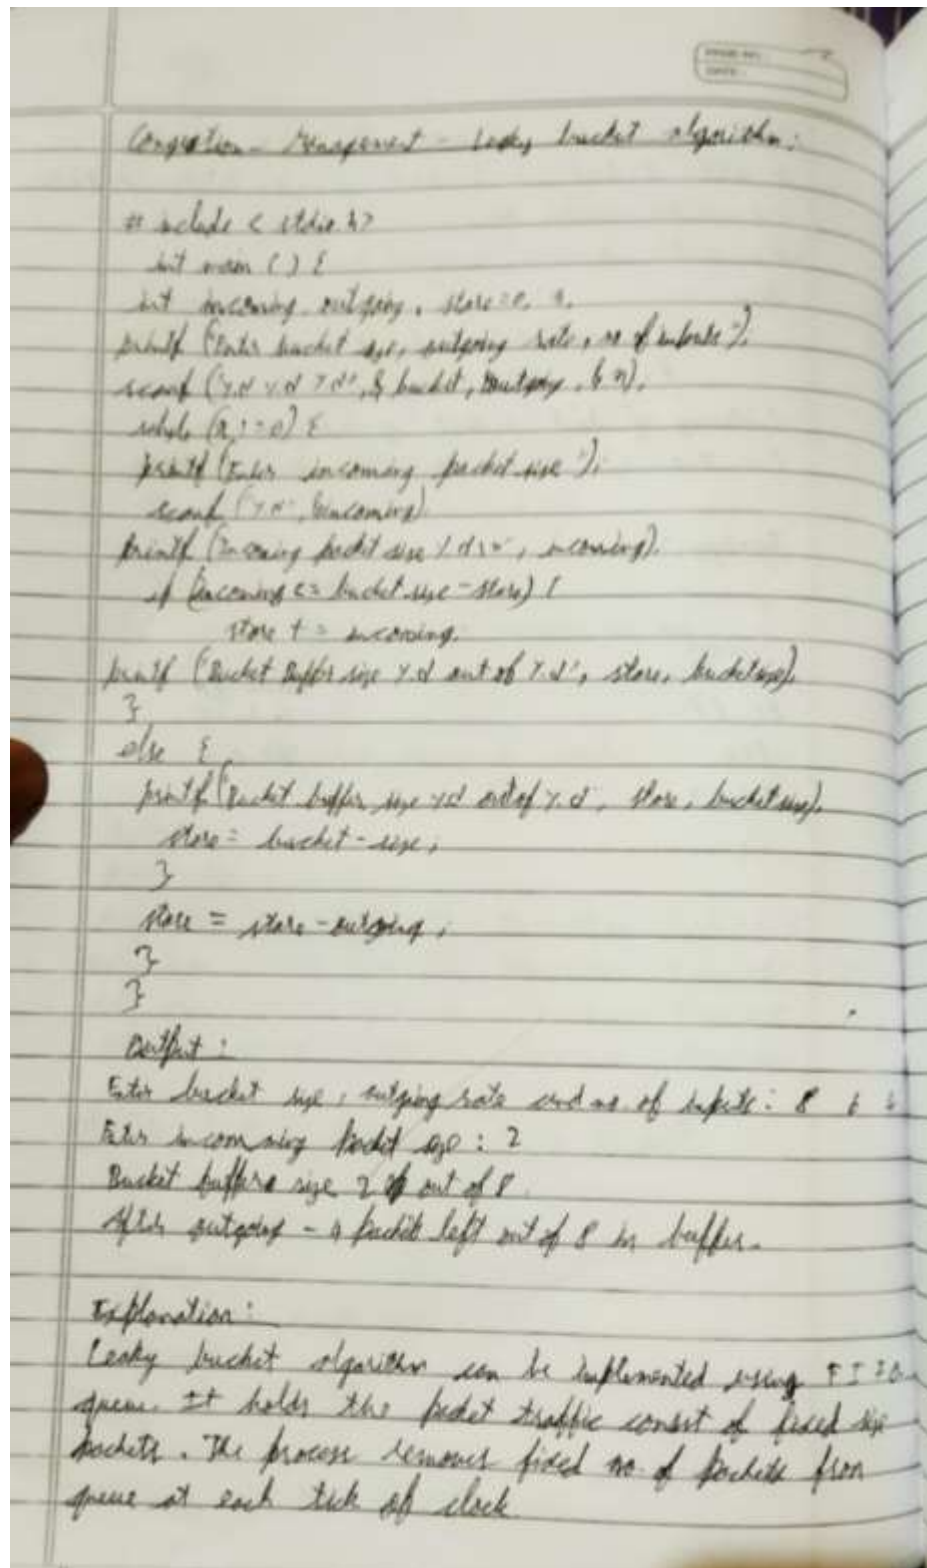 PAGE NO.:
DATE:
Congestion - Management - Leaky bucket algorithm:
# include < stdio.h>
int main ( ) {
int incoming, outgoing, store=0, n,
printf ("Enter bucket size, outgoing rate, no of inputs");
scanf ("%d %d %d", & bucket, &outgoing, & n),
while (n != 0) {
printf ("Enter incoming packet size");
scanf ("%d", &incoming)
printf (Incoming packet size %d\n", incoming).
if (incoming <= bucket size - store) {
store + = incoming.
printf ("Bucket Buffer size %d out of %d", store, bucket size),
}
else {
printf ("Packet buffer size %d out of %d", store, bucket size),
store = bucket - size;
}
store = store - outgoing ;
}
}
Output :
Enter bucket size, outgoing rate and no. of inputs: 8 6
Enter incomming packet size : 2
Bucket buffer size 2 out of 8
After outgoing - packets left out of 8 in buffer.
Explanation:
Leaky bucket algorithm can be implemented using FIFO
queue. It holds the packet traffic consist of fixed size
packets. The process removes fixed no. of packets from
queue at each tick of clock